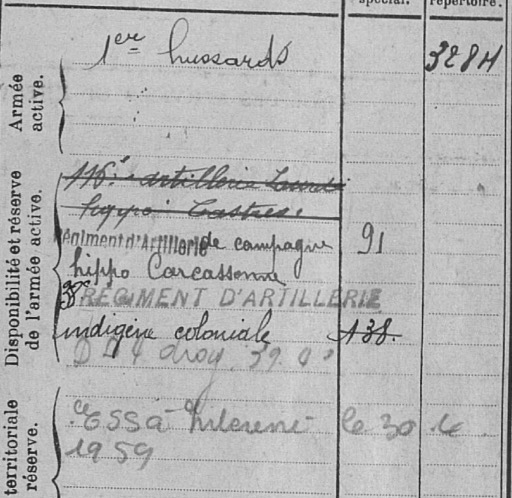 spécial. répertoire.
Armée active.
1er hussards 328H
Disponibilité et réserve de l'armée active.
116e artillerie Lourde
hippo Castres.
Régiment d'Artillerie de campagne 91
hippo Carcassonne
RÉGIMENT D'ARTILLERIE
indigène coloniale 138.
territoriale réserve.
le 30
1959